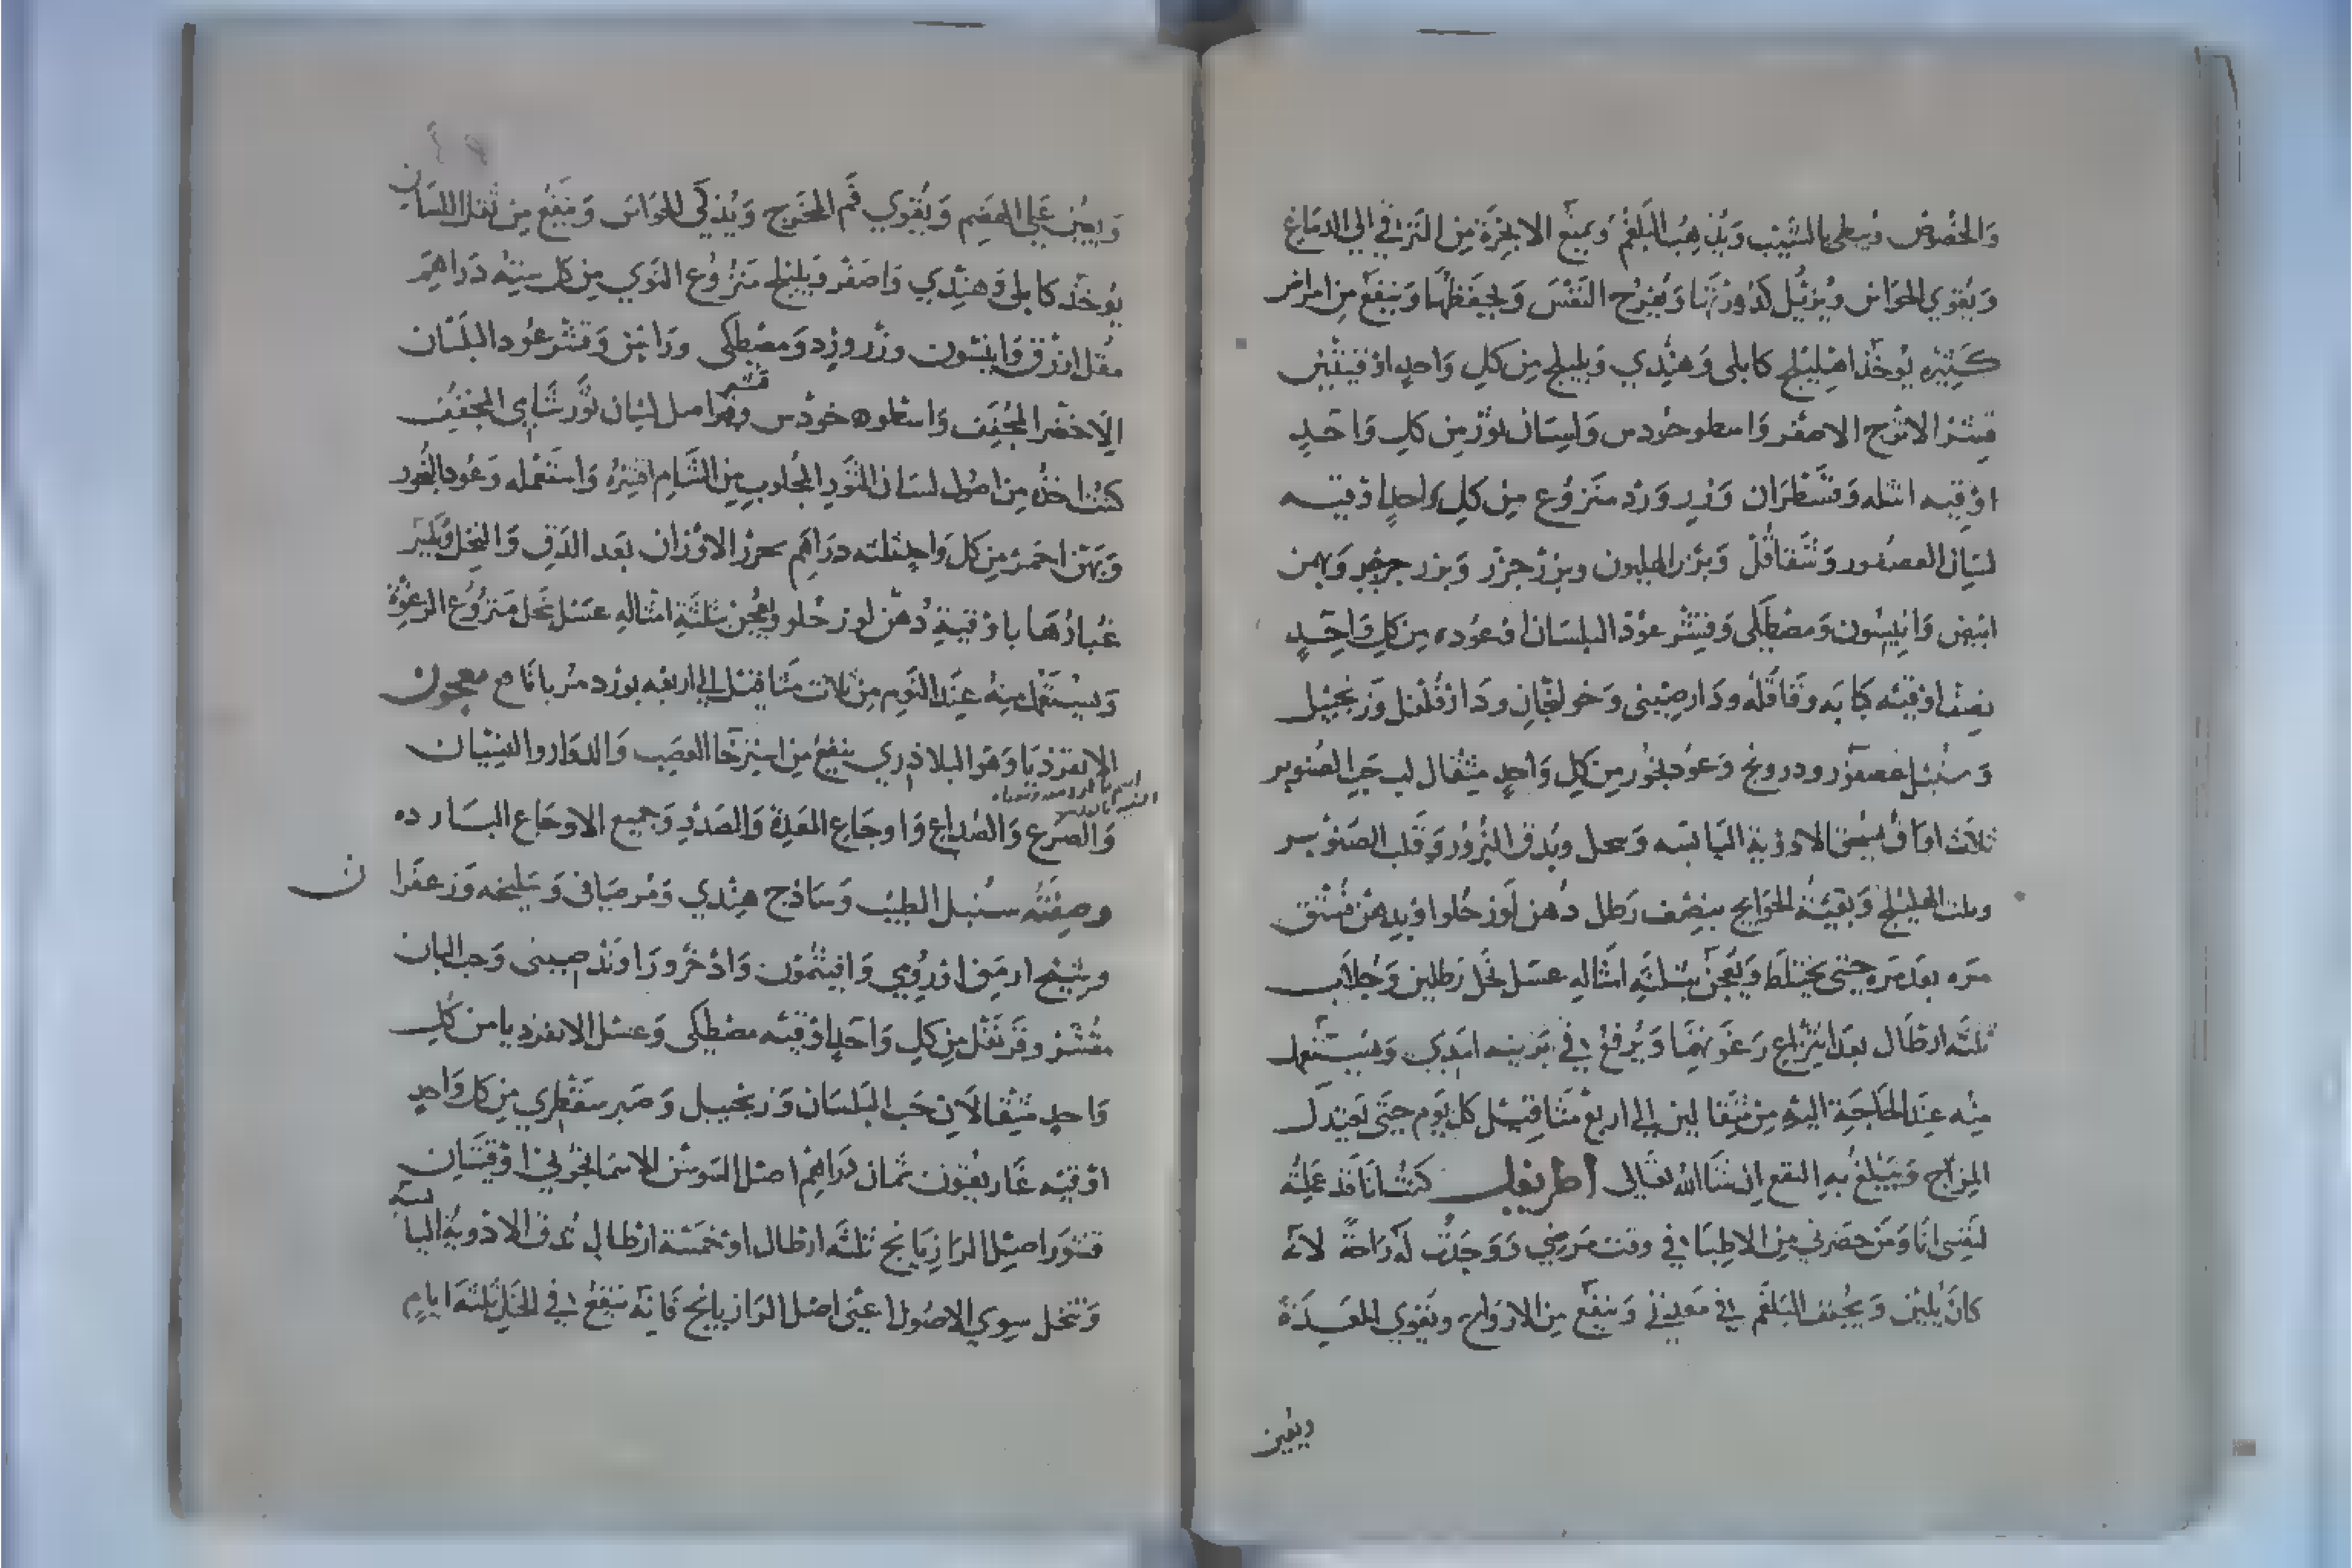 والخصوص ويبطي بالشيب ويذهب البلغم ويمنع الابخرة من الترافي الي الدماغ
ويقوي الحواس ويزيل كدورتها ويفرح النفس ويحفظها وينفع من امراض
كثيره يوخذ اهليلج كابلي وهندي وبليلج من كل واحد اوقيتين
قشر الاترج الاصفر واسطوخودس ولسان ثور من كل واحد
اوقيه اشله وقسطران وزر ورد منزوع من كل واحد اوقيه
لسان العصفور وشقاقل وبزر الهليون وبزر جزر وبزر جرجير وبهمن
ابيض وانيسون ومصطكي وقشر عود البلسان او عوده من كل واحد
نصف اوقيه كبابه وقاقله ودارصيني وخولنجان ودارفلفل وزنجبيل
وسنبل عصفور ودرونج وعود بخور من كل واحد مثقال لب حب الصنوبر
ثلاث اواق يسحق الادوية اليابسه وينخل ويدق البزور وقلب الصنوبر
ويلت الهليلج وبقية الحوايج بنصف رطل دهن لوز حلو او بدهن فستق
مره بعد مره حتى يختلط ويعجن بثلثة امثاله عسل نحل رطلين وجلاب
ثلثة ارطال بعد انتزاع رغوتهما ويرفع في برنيه ويستعمل
منه عند الحاجة اليه من مثقالين الي اربع مثاقيل كل يوم حتى يعتدل
المزاج ويبلغ به النفع ان شا الله تعالي اطريفل كنت انا قد عملته
لنفسي انا ومن حضرني من الاطبا في وقت مرضي ووجدت له راحة لانه
كان يلين ويجفف البلغم في معدتي وينفع من الارواح ويقوي المعدة
ويعين
ويعين علي الهضم ويقوي فم المخرج ويذكي الحواس وينفع من ثقل اللسان
يوخذ كابلي وهندي واصفر وبليلج منزوع النوي من كل سته دراهم
مقل ازرق وانيسون وزر ورد ومصطكي وقشر عود البلسان
الاخضر المجفف واسطوخودس وقشر اصل لسان ثور شامي المجفف
كنت اخذه من اصول لسان الثور المجلوب من الشام اقشره واستعمله وعود بخور
وبهمن احمر من كل واحد ثلثه دراهم تحرز الاوزان بعد الدق والنخل
غبارها باوقية دهن لوز حلو ويعجن بثلثة امثاله عسل نحل منزوع الرغوة
ويستعمل منه عند النوم من ثلاث مثاقيل الي اربعه بورد مربا نافع معجون
الانقرذيا وهو البلاذري ينفع من استرخا العصب والدوار والنسيان
والصرع والصداع واوجاع المعدة والصدر وجميع الاوجاع البارده
وصفته سنبل الطيب وساذج هندي ومر صافي وسليخه وزعفران
وشيح ارمني او رومي وافيثمون واذخر وراوند صيني وحب البان
مقشر وقرنفل من كل واحد اوقيه مصطكي وعسل الانقرديا من كل
واحد مثقالان حب البلسان وزنجبيل وصبر سقطري من كل واحد
اوقيه غاريقون ثمان دراهم اصل السوسن الاسمانجوني اوقيتان
قشور اصل الرازيانج ثلثة ارطال او خمسة ارطال تدق الادوية اليابسه
وتنخل سوي الاصول اعني اصل الرازيانج فانه ينقع في الخل ثلثة ايام